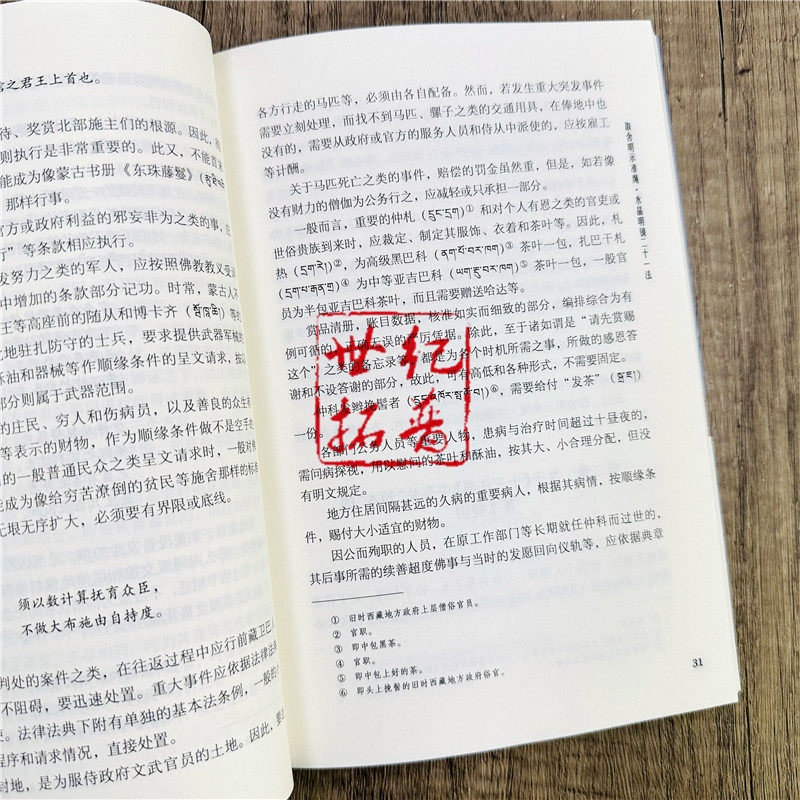 言之君王上首也。
待、奖赏北部施主们的根源。因此,
则执行是非常重要的。此又,不能首
能成为像蒙古书册《东珠藤鬘》
那样行事。
官方或政府利益的邪妄非为之类的事,应
行”等条款相应执行。
发努力之类的军人,应按照佛教教义受
中增加的条款部分记功。时常,蒙古人不
王等高座前的随从和博卡齐
此地驻扎防守的士兵,要求提供武器军械的
酥油和器械等作顺缘条件的呈文请求,按以
部分则属于武器范围。
的庄民、穷人和伤病员,以及善良的众生
等表示的财物,作为顺缘条件做不是空手的
的一般普通民众之类呈文请求时,一般对
能成为像给穷苦潦倒的贫民等施舍那样的标
无垠无序扩大,必须要有界限或底线。
须以数计算抚育众臣,
不做大布施由自持度。
判处的案件之类,在往返过程中应行前藏卫巴
不阻碍,要迅速处置。重大事件应依据法律法
。法律法典下附有单独的基本法条例,一般的
程序和请求情况,直接处置。
封地,是为服侍政府文武官员的土地。因此,要
各方行走的马匹等,必须由各自配备。然而,若发生重大突发事件
需要立刻处理,而找不到马匹、骡子之类的交通用具,在俸地中也
没有的,需要从政府或官方的服务人员和侍从中派使的,应按雇工
等计酬。
关于马匹死亡之类的事件,赔偿的罚金虽然重,但是,如若像
没有财力的僧伽为公务行之,应减轻或只承担一部分。
一般而言,重要的仲札(དྲུང་དྲག)①和对个人有恩之类的官吏或
世俗贵族到来时,应裁定、制定其服饰、衣着和茶叶等。因此,札
热(དྲག་རེ།)②,为高级黑巴科(ནག་པོ་བར་ཁག)③茶叶一包,扎巴干札
(དྲག་པ་རྒན་གྲ)④为中等亚吉巴科(ཡག་རྩི་བར་ཁག)⑤茶叶一包,一般官
员为半包亚吉巴科茶叶,而且需要赠送哈达等。
赏品清册,账目数据,核准如实而细致的部分,编排综合为有
例可循的、破无误的厅凭据。除此,至于诸如谓是“请先赏赐
这个”之类的备忘录等,都是为各个时机所需之事,所做的感恩答
谢和不设答谢的部分,故此,可有高低和各种形式,不需要固定。
仲科发辫挽髻者⑥,需要给付“发茶”
一份。
各部门公务人员等重要人物,患病与治疗时间超过十昼夜的,
需问病探视,用以慰问的茶叶和酥油,按其大、小合理分配,但没
有明文规定。
地方住居间隔甚远的久病的重要病人,根据其病情,按顺缘条
件,赐付大小适宜的财物。
因公而殉职的人员,在原工作部门等长期就任仲科而过世的,
其后事所需的续善超度佛事与当时的发愿回向仪轨等,应依据典章
① 旧时西藏地方政府上层僧俗官员。
② 官职。
③ 即中包黑茶。
④ 官职。
⑤ 即中包上好的茶。
⑥ 即头上挽髻的旧时西藏地方政府俗官。
31
水晶明镜二十一法
世纪
拓普